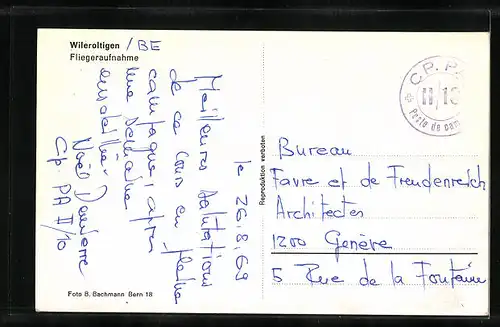 Wileroltigen / BE
Fliegeraufnahme
le 26.8.69
Meilleures salutations
de ce cours en pleine
campagne, après
une semaine
Noël
Cp. PA II/10
Reproduktion verboten
C.P. P.
II/13
Poste de cam
Bureau
Favre et de Freudenreich
Architectes
1200 Genève
5 Rue de la Fontaine
Foto B. Bachmann Bern 18